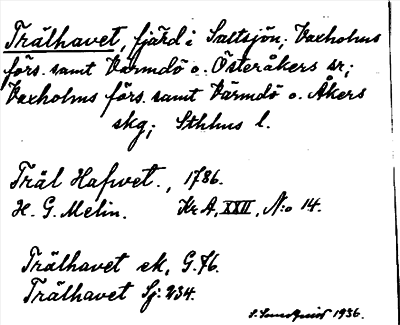 Trälhavet, fjärd i Saltsjön; Vaxholms
förs. samt Värmdö o. Österåkers sr;
Vaxholms förs. samt Värmdö o. Åkers
skg; Sthlms l.
Träl Hafwet., 1786.
H. G. Melin. Kr A, XXII, N:o 14.
Trälhavet ek, G.76.
Trälhavet Sj: 234.
1936.